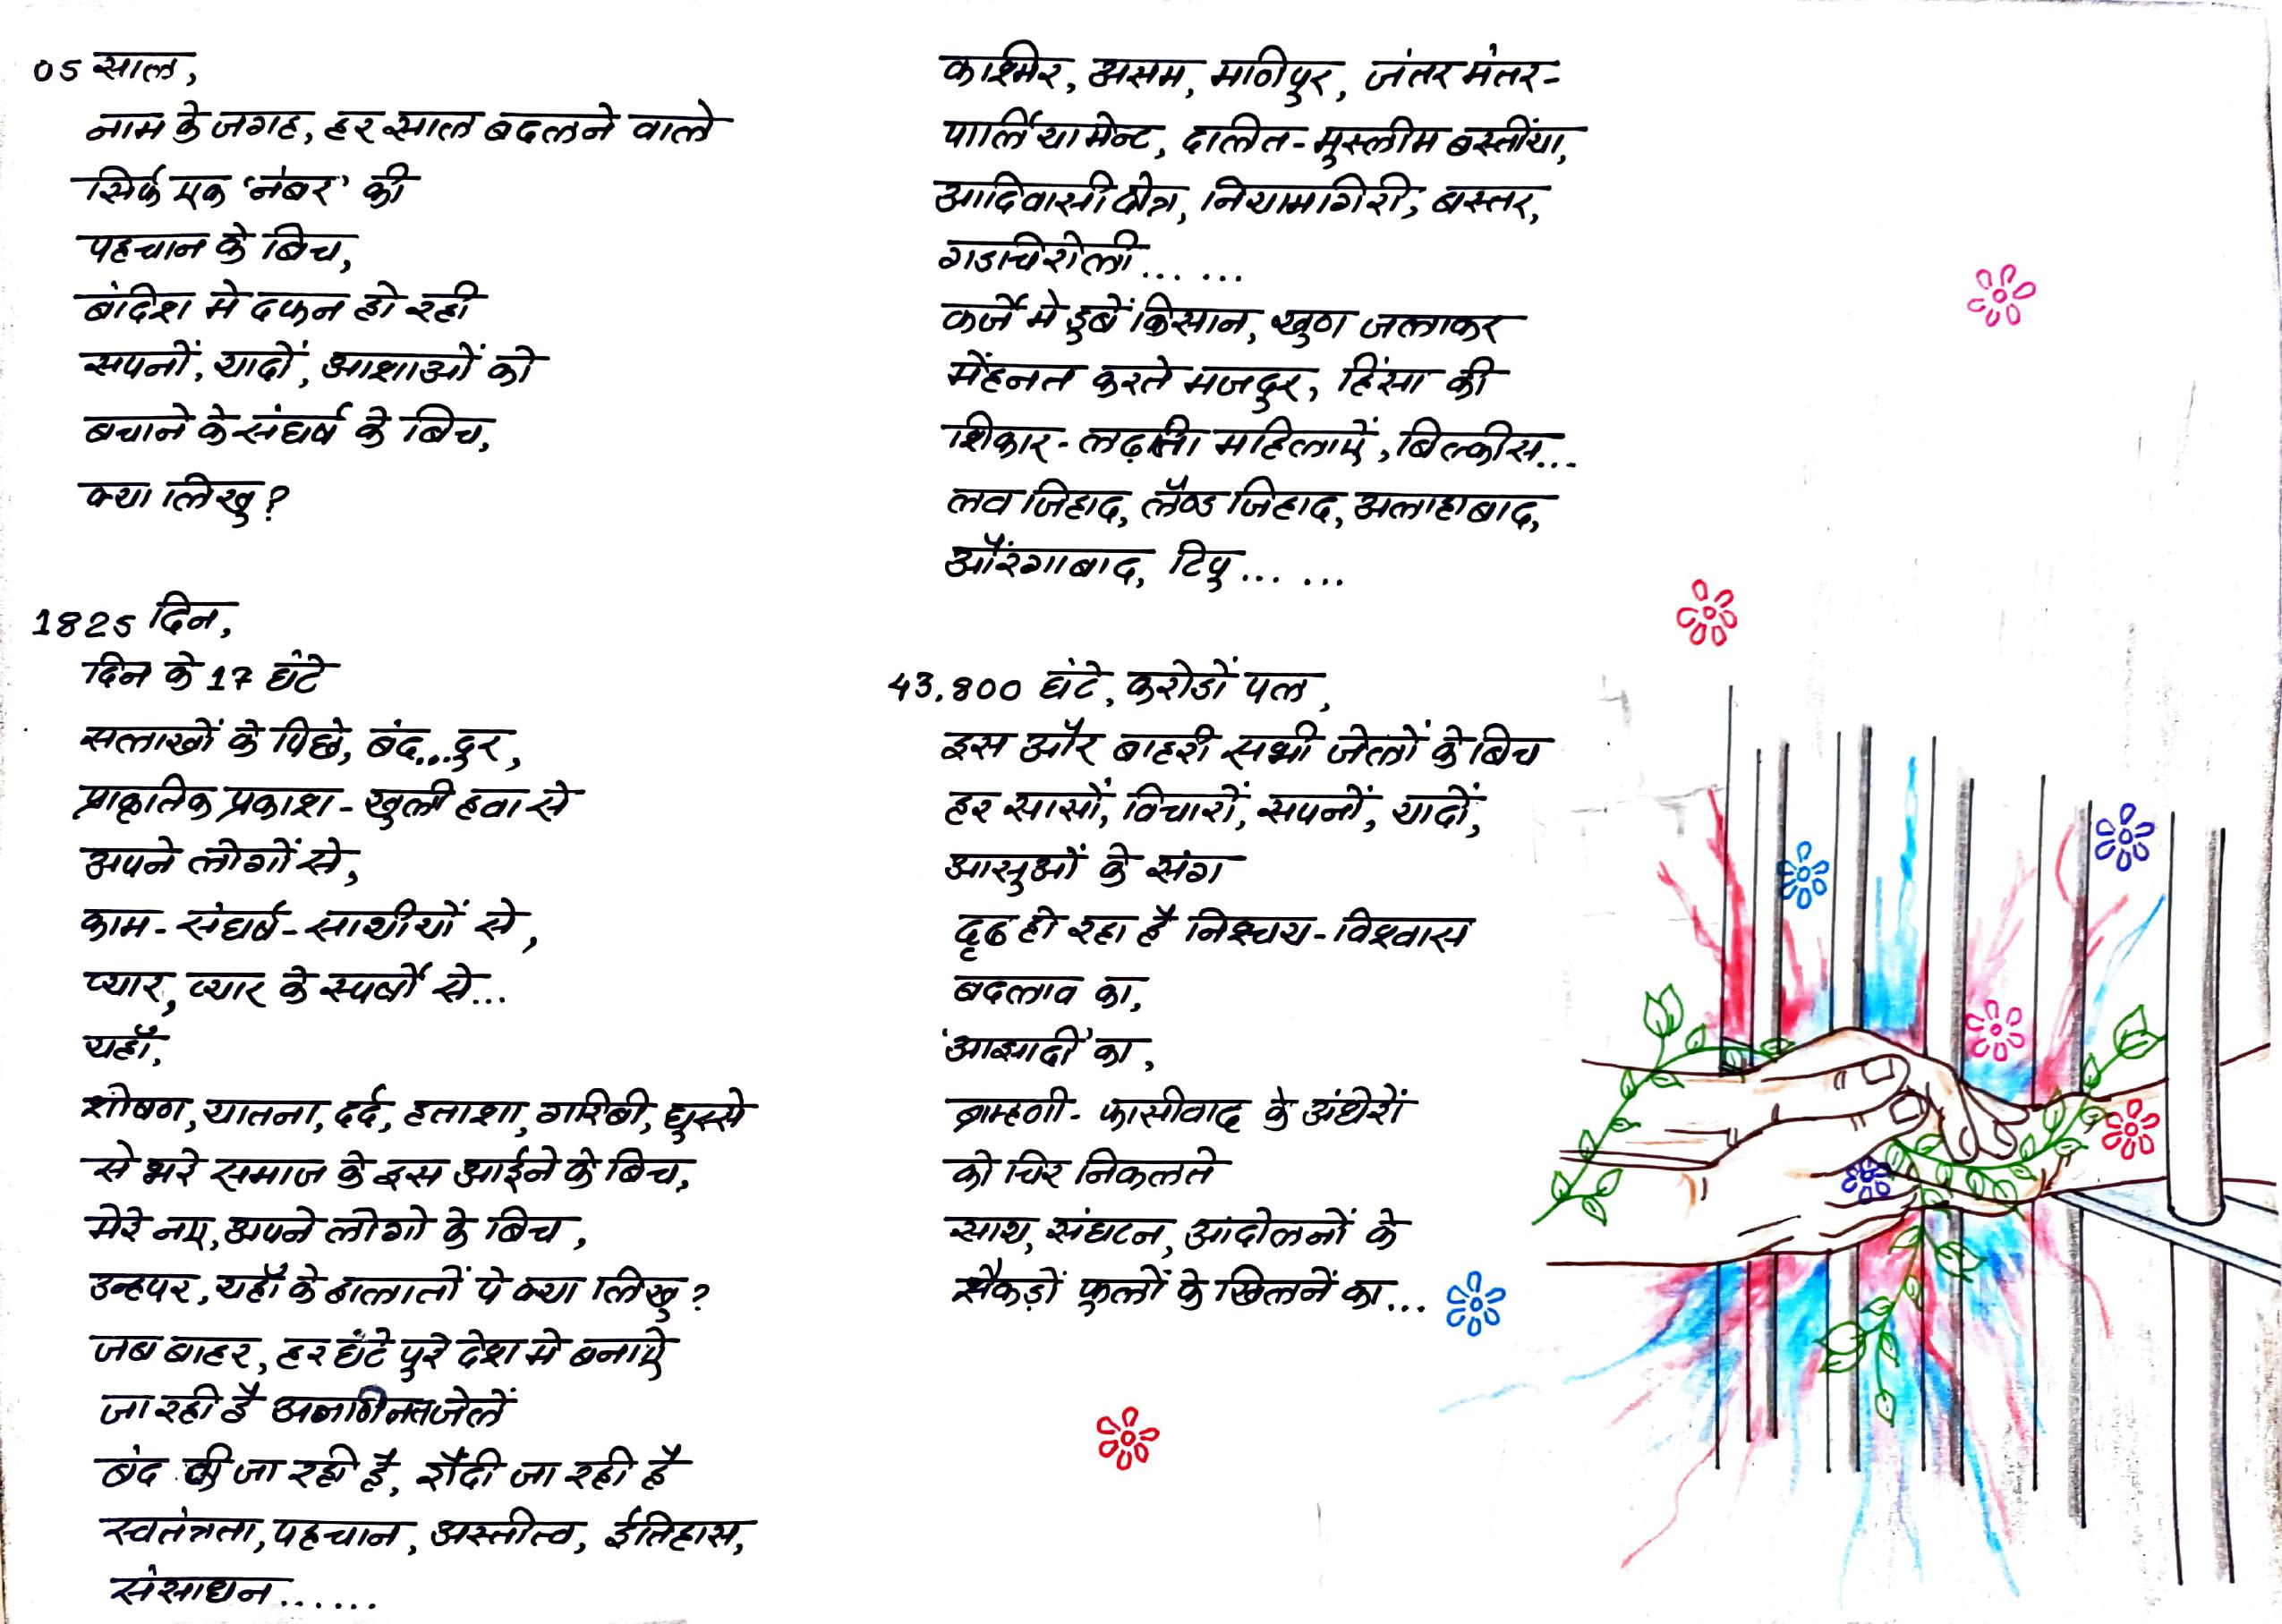 05 साल,
नाम के जगह, हर साल बदलने वाले
सिर्फ एक 'नंबर' की
पहचान के बिच,
बंदिश मे दफन हो रही
सपनों, यादों, आशाओं को
बचाने के संघर्ष के बिच,
क्या लिखु?
1825 दिन,
दिन के 17 घंटे
सलाखों के पिछे, बंद...दुर,
प्राकृतिक प्रकाश - खुली हवा से
अपने लोगों से,
काम - संघर्ष - साथीयों से,
प्यार, प्यार के स्पर्शो से...
यहाँ,
शोषण, यातना, दर्द, हताशा, गरिबी, घुस्से
से भरे समाज के इस आईने के बिच,
मेरे नए, अपने लोगो के बिच,
उन्हपर, यहाँ के हालातों पे क्या लिखु?
जब बाहर, हर घंटे पुरे देश मे बनाऐ
जा रही है अनगिनत जेलें
बंद की जा रही है, रौंदी जा रही है
स्वतंत्रता, पहचान, अस्तीत्व, ईतिहास,
संसाधन......
काश्मिर, असम, मणिपुर, जंतर मंतर-
पार्लियामेन्ट, दलित - मुस्लीम बस्तींया,
आदिवासी क्षेत्र, नियामगिरी, बस्तर,
गडचिरोली... ...
कर्जे मे डुबें किसान, खुण जलाकर
मेंहनत करते मजदुर, हिंसा की
शिकार - लढ़ती महिलाऐं, बिल्कीस...
लव जिहाद, लॅण्ड जिहाद, अलाहाबाद,
औरंगाबाद, टिपु... ...
43,800 घंटे, करोडों पल,
इस और बाहरी सभी जेलों के बिच
हर सासों, विचारों, सपनों, यादों,
आसुओं के संग
दृढ हो रहा है निश्चय - विश्वास
बदलाव का,
'आझादी' का,
ब्राम्हणी - फासीवाद के अंधेरों
को चिर निकलते
साथ, संघटन, आंदोलनों के
सैकड़ों फुलों के खिलनें का...